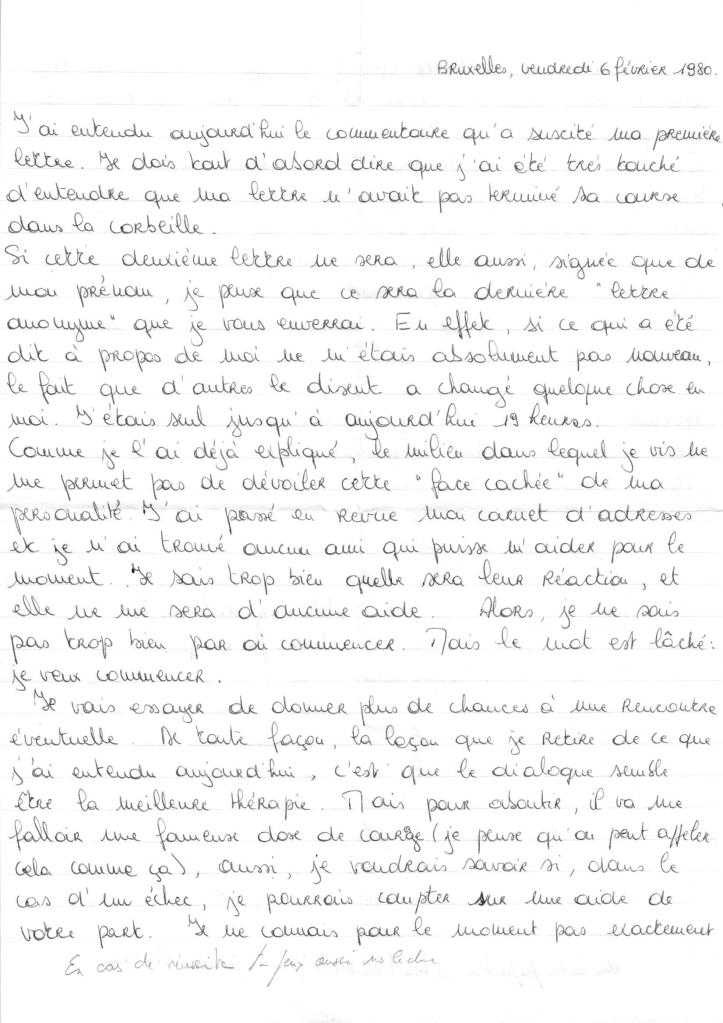 Bruxelles, vendredi 6 février 1980.
J'ai entendu aujourd'hui le commentaire qu'a suscité ma première
lettre. Je dois tout d'abord dire que j'ai été très touché
d'entendre que ma lettre n'avait pas terminé sa course
dans la corbeille.
Si cette deuxième lettre ne sera, elle aussi, signée que de
mon prénom, je pense que ce sera la dernière "lettre
anonyme" que je vous enverrai. En effet, si ce qui a été
dit à propos de moi ne m'étais absolument pas nouveau,
le fait que d'autres le disent a changé quelque chose en
moi. J'étais seul jusqu'à aujourd'hui 19 heures.
Comme je l'ai déjà expliqué, le milieu dans lequel je vis ne
me permet pas de dévoiler cette "face cachée" de ma
personalité. J'ai passé en revue mon carnet d'adresses
et je n'ai trouvé aucun ami qui puisse m'aider pour le
moment. Je sais trop bien quelle sera leur réaction, et
elle ne me sera d'aucune aide. Alors, je ne sais
pas trop bien par où commencer. Mais le mot est lâché:
je veux commencer.
Je vais essayer de donner plus de chances à une rencontre
éventuelle. De toute façon, la leçon que je retire de ce que
j'ai entendu aujourd'hui, c'est que le dialogue semble
être la meilleure thérapie. Mais pour aboutir, il va me
falloir une fameuse dose de courage (je pense qu'on peut appeler
cela comme ça), aussi, je voudrais savoir si, dans le
cas d'un échec, je pourrais compter sur une aide de
votre part. Je ne connais pour le moment pas exactement
En cas de réussite tu peux aussi